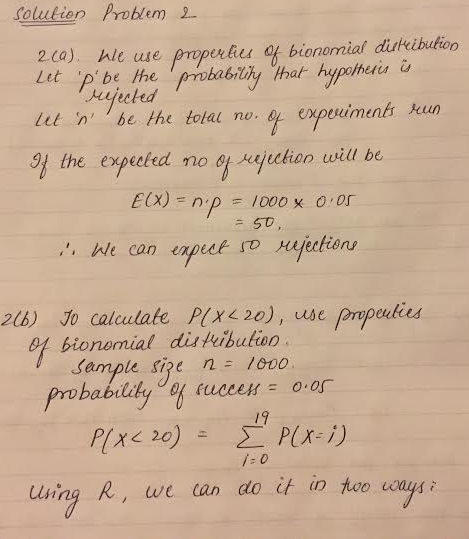 Solution Problem 2
2(a). We use properties of bionomial distribution
Let 'p' be the probability that hypothesis is
rejected
Let 'n' be the total no. of experiments run
If the expected no of rejection will be
E(X) = n·p = 1000 x 0.05
= 50.
∴ We can expect 50 rejections
2(b) To calculate P(X<20), use properties
of bionomial distribution.
Sample size n = 1000.
probability of success = 0.05
P(X<20) = 19∑i=0 P(X=i)
Using R, we can do it in two ways: